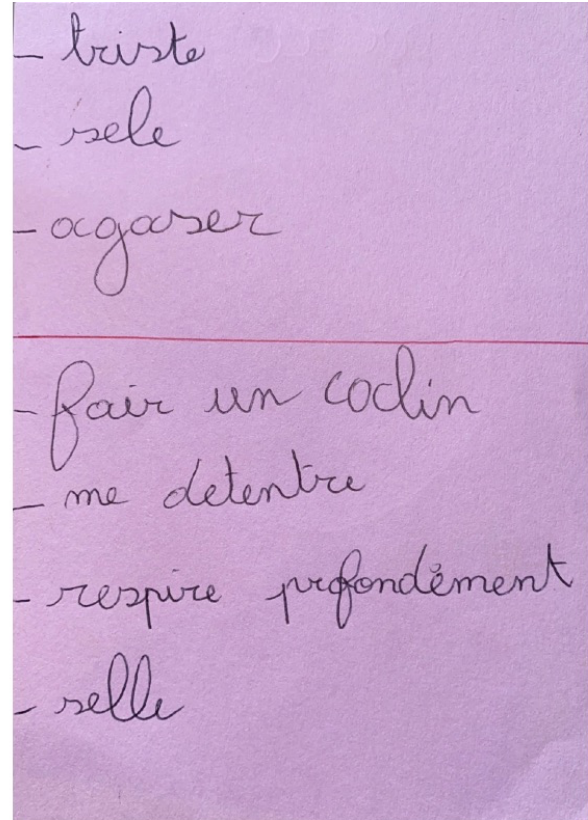 - triste
- sele
- agaser
- fair un coclin
- me detentre
- respire profondément
- selle